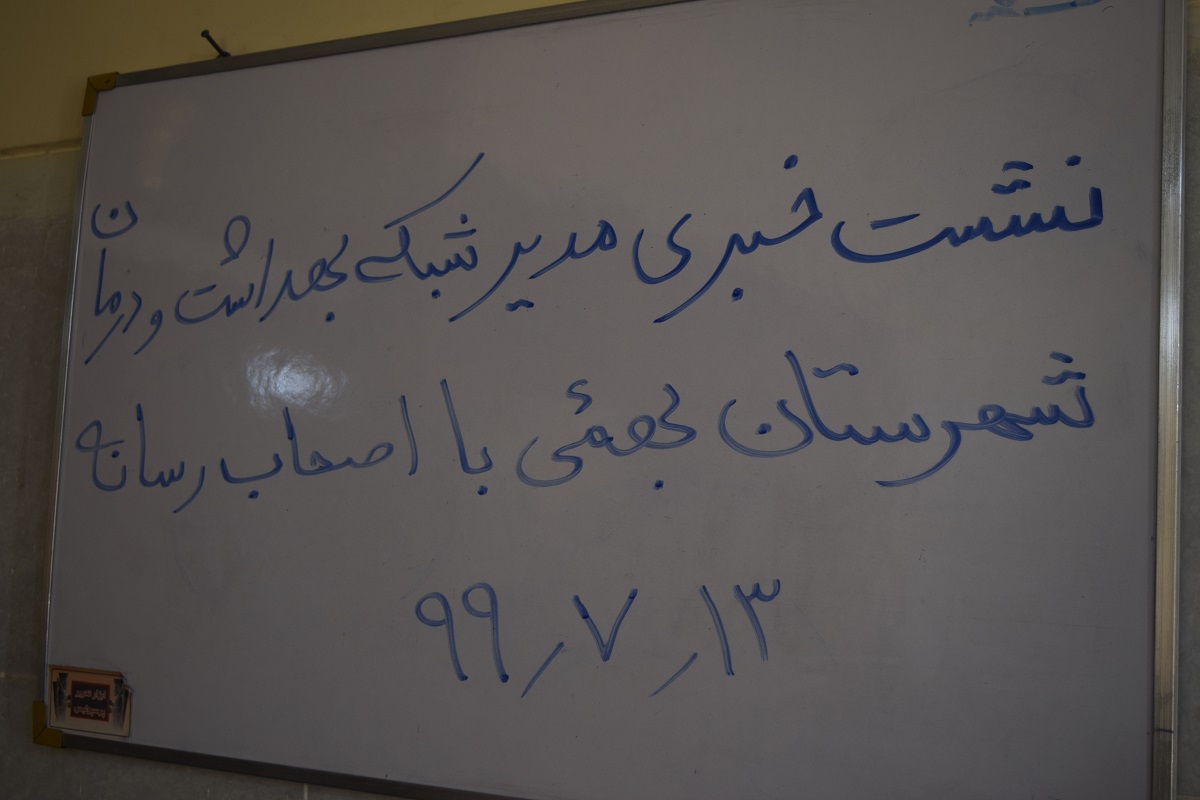 نشست خبری مدیر شبکه بهداشت و درمان
شهرستان بهمئی با اصحاب رسانه
۹۹٫۷٫۱۳